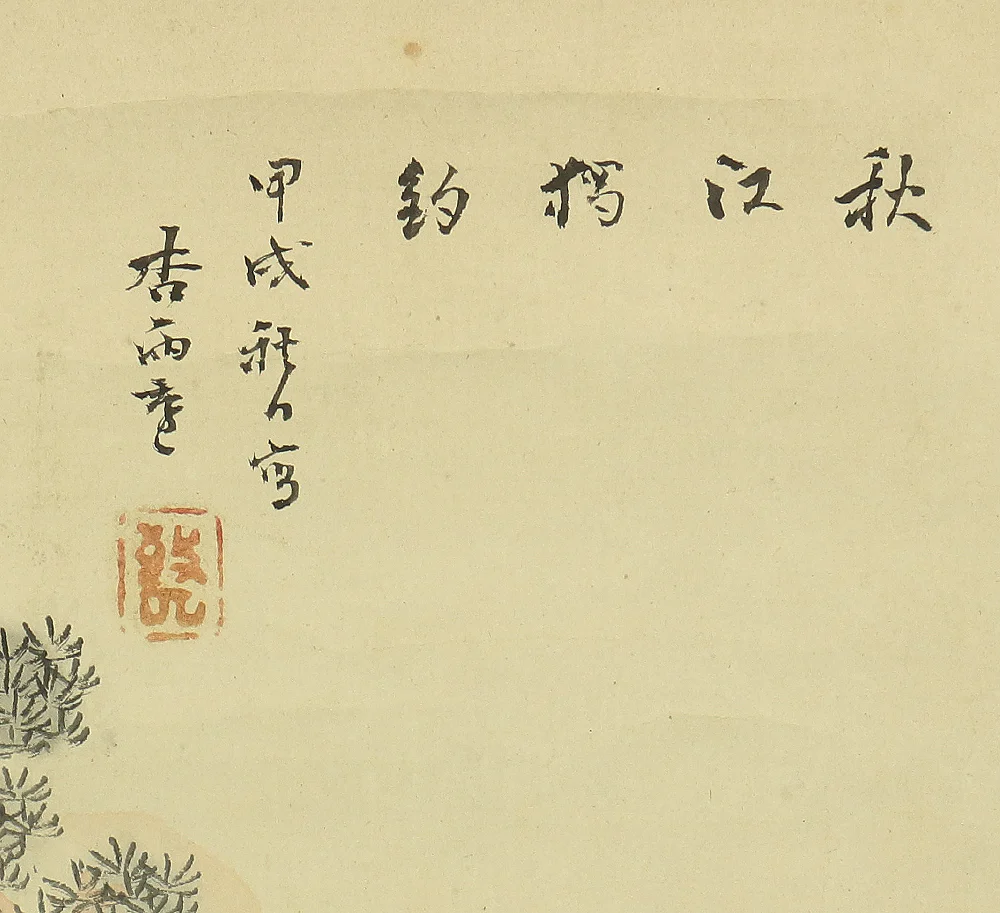 秋江獨釣
甲戌秋日寫
杏雨